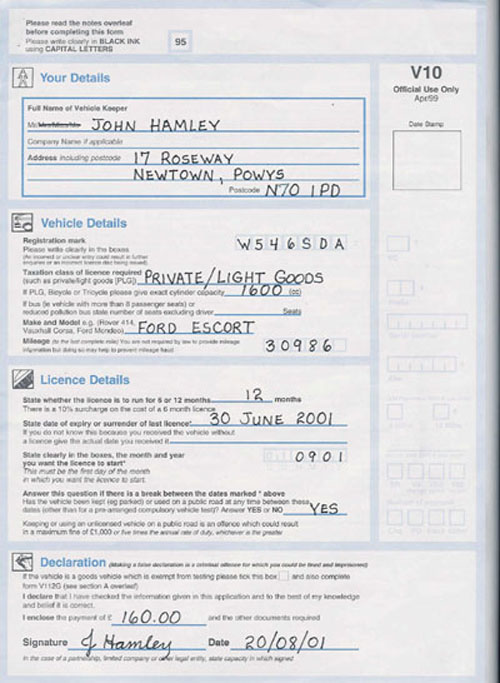 Please read the notes overleaf
before completing this form
Please write clearly in BLACK INK
using CAPITAL LETTERS
95
V10
Official Use Only
Apr/99
Date Stamp
Your Details
Full Name of Vehicle Keeper
JOHN HAMLEY
Company Name if applicable
Address including postcode 17 ROSEWAY
NEWTOWN, POWYS
Postcode N70 1PD
Vehicle Details
Registration mark
Please write clearly in the boxes W546SDA
(An incorrect or unclear entry could result in further
enquiries or an incorrect licence disc being issued).
Taxation class of licence required PRIVATE/LIGHT GOODS
(such as private/light goods [PLG])
If PLG, Bicycle or Tricycle please give exact cylinder capacity 1600 (cc)
If bus (ie vehicle with more than 8 passenger seats) or
reduced pollution bus state number of seats excluding driver Seats
Make and Model e.g. (Rover 414,
Vauxhall Corsa, Ford Mondeo) FORD ESCORT
Mileage (to the last complete mile) You are not required by law to provide mileage
information but doing so may help to prevent mileage fraud 30986
Licence Details
State whether the licence is to run for 6 or 12 months 12 months
There is a 10% surcharge on the cost of a 6 month licence
State date of expiry or surrender of last licence* 30 JUNE 2001
If you do not know this because you received the vehicle without
a licence give the actual date you received it
State clearly in the boxes, the month and year
you want the licence to start* 0901
This must be the first day of the month
in which you want the licence to start.
Answer this question if there is a break between the dates marked * above
Has the vehicle been kept (eg parked) or used on a public road at any time between those
dates (other than for a pre-arranged compulsory vehicle test)? Answer YES or NO YES
Keeping or using an unlicensed vehicle on a public road is an offence which could result
in a maximum fine of £1,000 or five times the annual rate of duty, whichever is the greater
Declaration (Making a false declaration is a criminal offence for which you could be fined and imprisoned)
If the vehicle is a goods vehicle which is exempt from testing please tick this box and also complete
form V112G (see section A overleaf)
I declare that I have checked the information given in this application and to the best of my knowledge
and belief it is correct.
I enclose the payment of £ 160.00 and the other documents required
Signature J Hamley Date 20/08/01
In the case of a partnership, limited company or other legal entity, state capacity in which signed